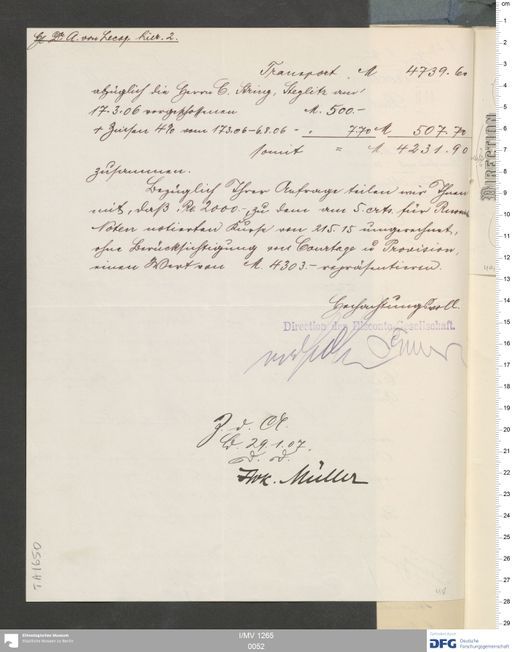 Dr. A. von Lecoq hier. 2.
Transport M 4739.60
abzüglich die Herrn C. Steglitz am
17.3.06 vorgeschossenen M. 500.–
+ Zinsen 4% vom 17.3.06–6.8.06 – " 7.70 M 507.70
somit = M. 4231.90
zusammen.
Bezüglich Ihrer Anfrage teilen wir Ihnen
mit, daß Rb 2000.–, zu dem am 5. crts. für
Noten notierten Kurse von 215.15 umgerechnet,
ohne Berücksichtigung von Courtage u Provision,
einen Wert von M. 4303.– repräsentieren.
Hochachtungsvoll.
Direction der Disconto-Gesellschaft.
Z. d. A.
B. 29.1.07.
Müller
IH1650
DIRECTION
Ethnologisches Museum
Staatliche Museen zu Berlin
I/MV 1265
0052
Gefördert durch
DFG Deutsche
Forschungsgemeinschaft
cm
1
2
3
4
5
6
7
8
9
10
11
12
13
14
15
16
17
18
19
20
21
22
23
24
25
26
27
28
29